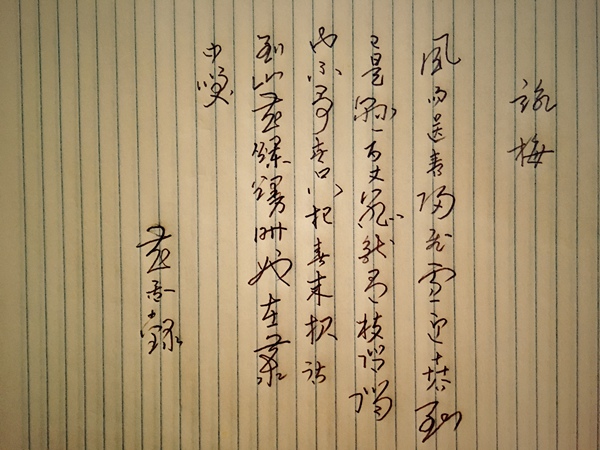 詠梅
風雨送春歸飛雪迎春到
已是懸崖百丈冰猶有花枝俏俏
也不爭春只把春來報待
到山花爛漫時她在叢
中笑